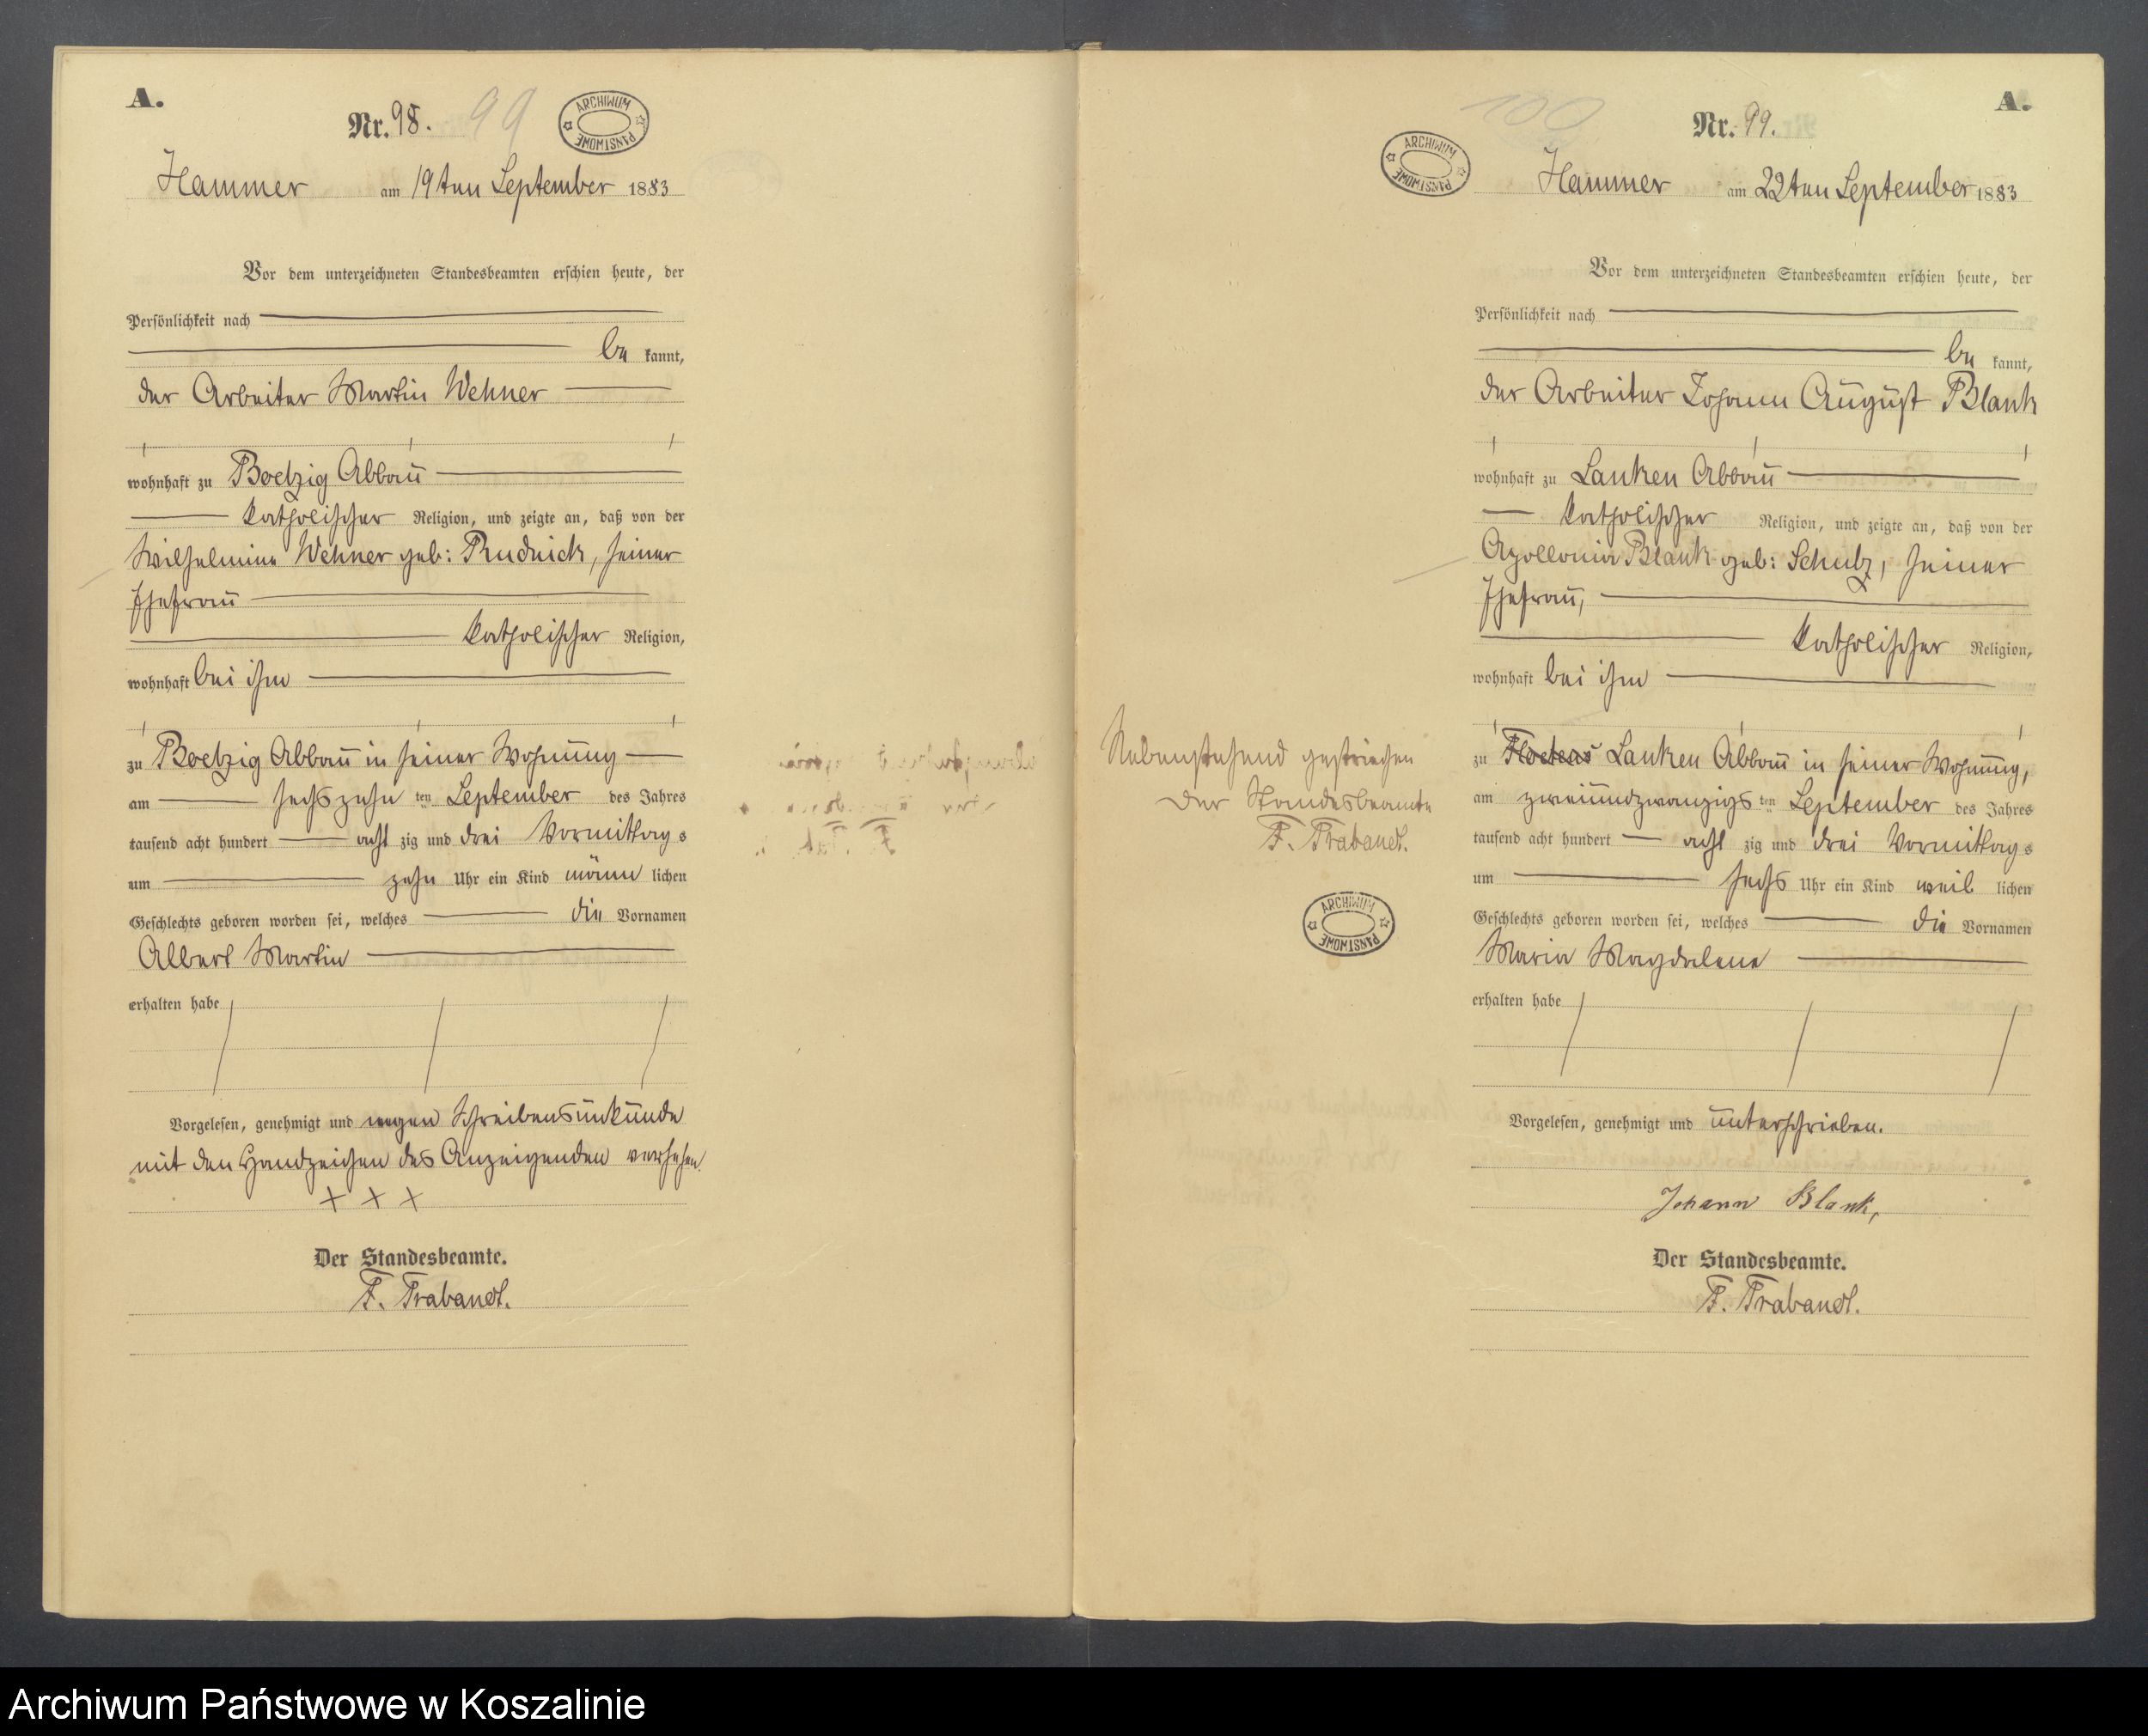 A.
Nr. 98. 99
ARCHIWUM PAŃSTWOWE
Hammer am 19ten September 1883
Vor dem unterzeichneten Standesbeamten erschien heute, der
Persönlichkeit nach
be kannt,
der Arbeiter Martin Wehner
wohnhaft zu Boetzig Abbau
katholischer Religion, und zeigte an, daß von der
Wilhelmine Wehner geb: Rudnick, seiner
Ehefrau
katholischer Religion,
wohnhaft bei ihm
zu Boetzig Abbau in seiner Wohnung
am sechszehn ten September des Jahres
tausend acht hundert acht zig und drei Vormittags
um zehn Uhr ein Kind männ lichen
Geschlechts geboren worden sei, welches die Vornamen
Albert Martin
erhalten habe
Vorgelesen, genehmigt und wegen Schreibensunkunde
mit den Handzeichen des Anzeigenden versehen.
+ + +
Der Standesbeamte.
F. Trabandt.
A.
100
Nr. 99.
ARCHIWUM PAŃSTWOWE
Hammer am 22ten September 1883
Vor dem unterzeichneten Standesbeamten erschien heute, der
Persönlichkeit nach
be kannt,
der Arbeiter Johann August Blank
wohnhaft zu Lanken Abbau
katholischer Religion, und zeigte an, daß von der
Apollonia Blank geb: Schulz, seiner
Ehefrau,
katholischer Religion,
wohnhaft bei ihm
zu Lanken Abbau in seiner Wohnung,
am zweiundzwanzigs ten September des Jahres
tausend acht hundert acht zig und drei Vormittags
um sechs Uhr ein Kind weib lichen
Geschlechts geboren worden sei, welches die Vornamen
Maria Magdalene
erhalten habe
Vorgelesen, genehmigt und unterschrieben.
Johann Blank,
Der Standesbeamte.
F. Trabandt.
Nebenstehend gestrichen
Der Standesbeamte
F. Trabandt.
ARCHIWUM PAŃSTWOWE
Archiwum Państwowe w Koszalinie